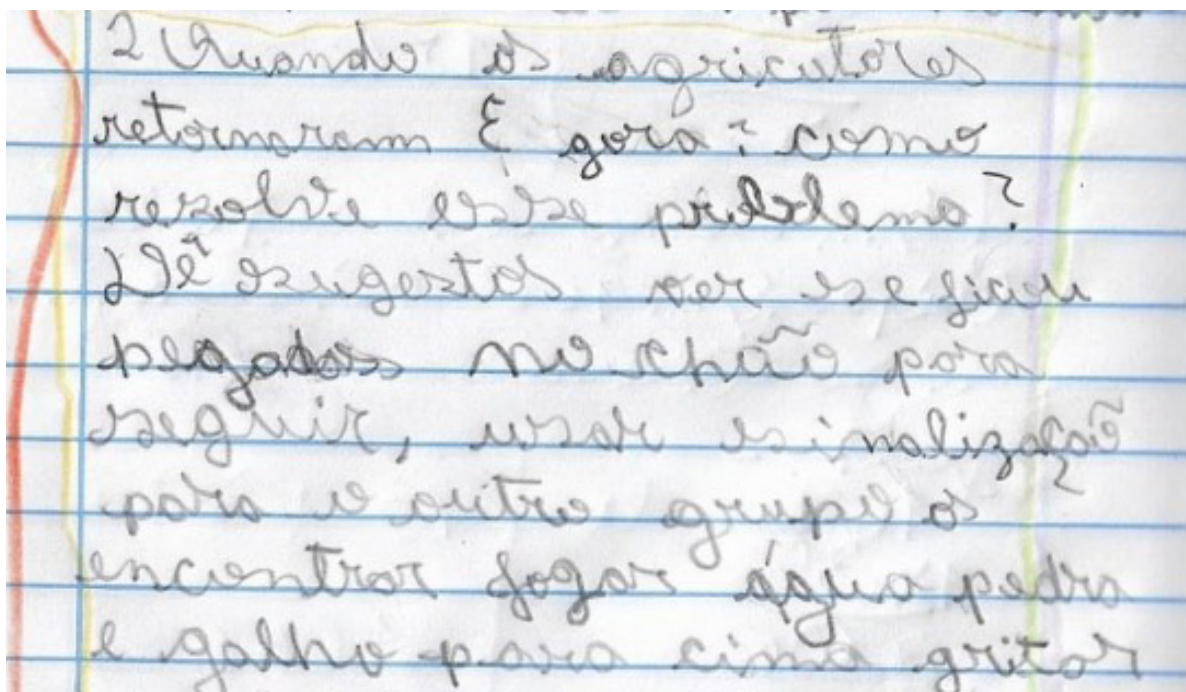 2 Quando os agricutores
retornaram E gora? como
resolve esse problema?
Dê sugestos ver se ficou
pegadas no chão para
seguir, usar sinalização
para o outro grupo os
encontrar jogar água pedra
e galho para cima gritar